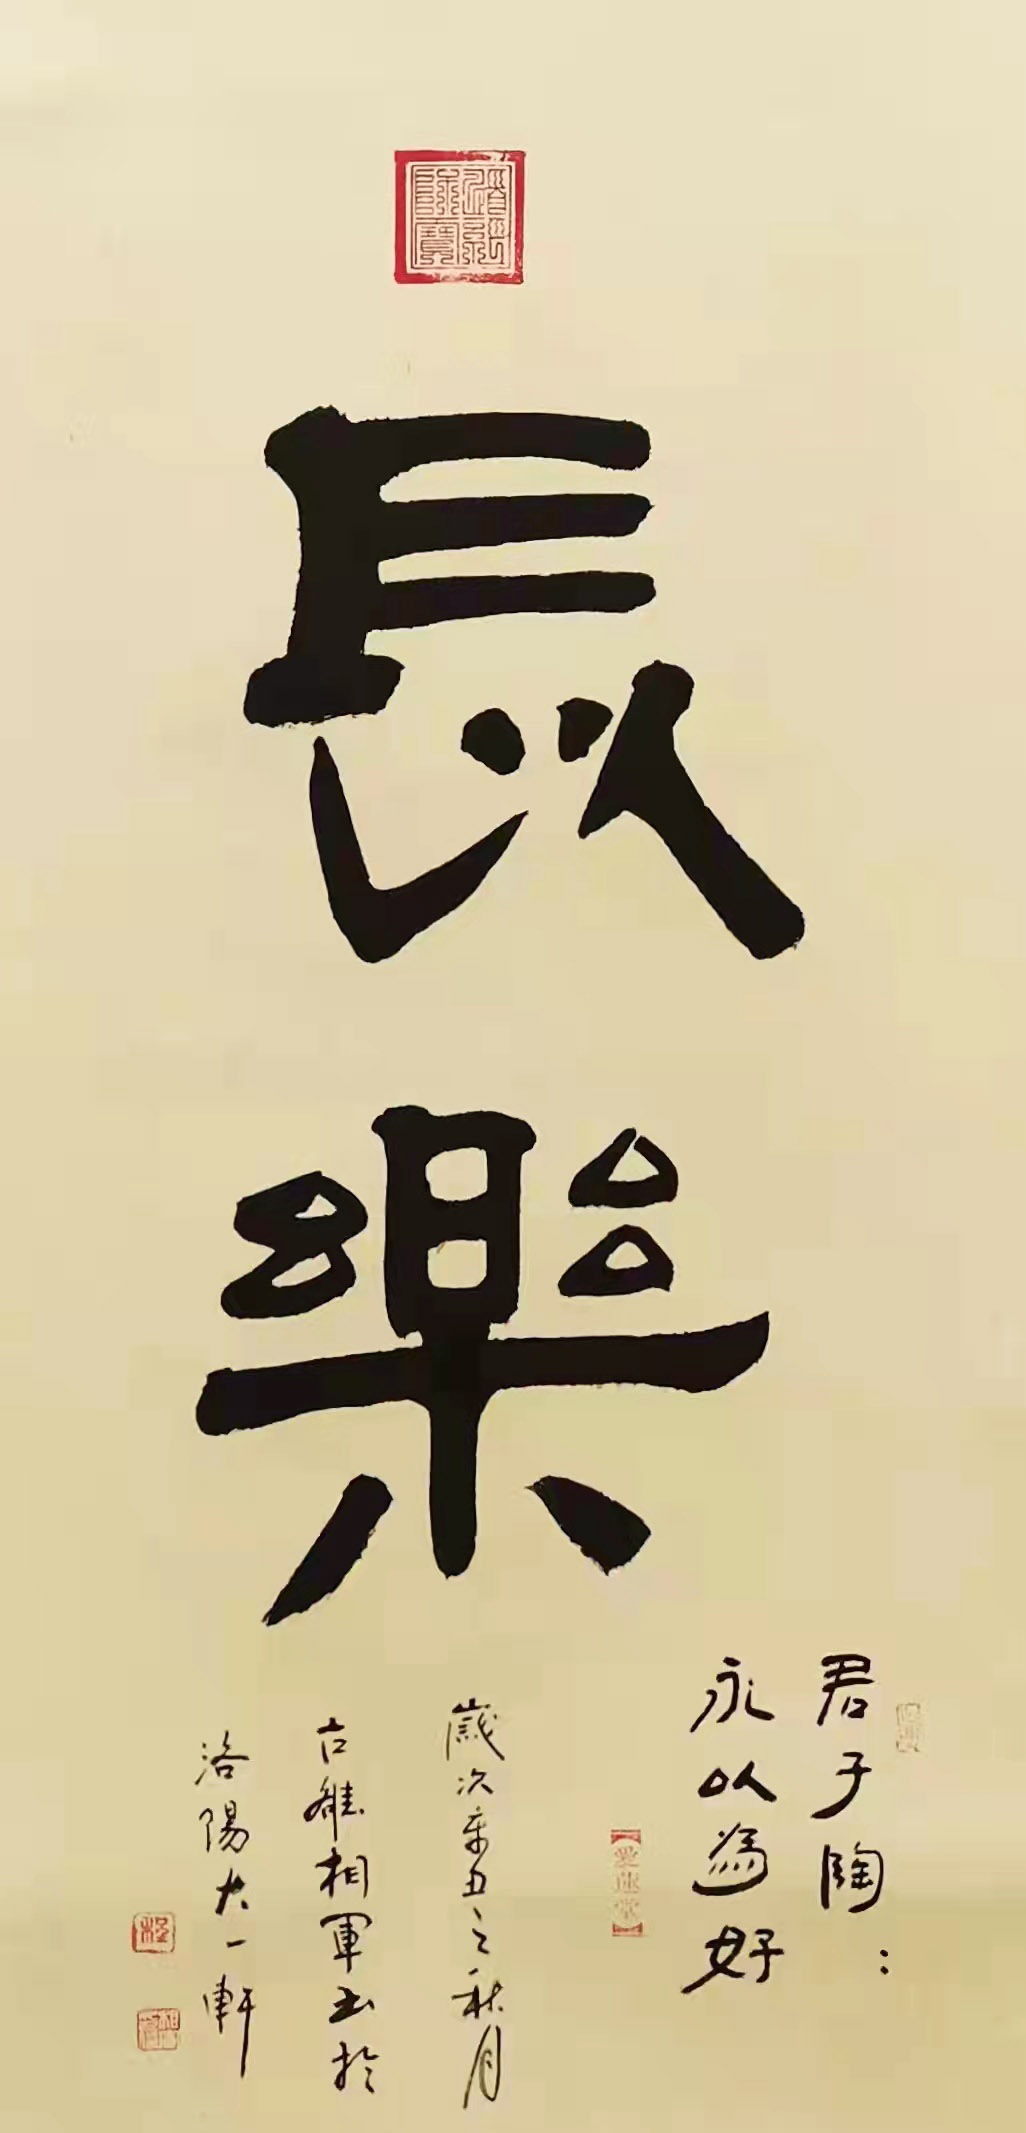 長樂
君子陶:
永以為好
歲次辛丑之秋月
古雒相軍書於
洛陽大一軒
愛蓮堂